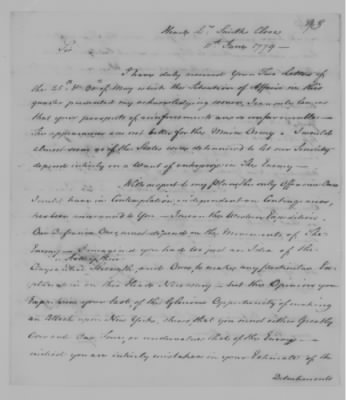 Head Qrs. Smiths Clove
June 1779 —
Sir
I have duly received Your Two Letters of
the 25th of May which the Situation of Affairs in this
quarter prevented my acknowledging sooner, I can only lament
that your prospects of reinforcements are so unfavorable —
The appearances are not better for the Main Army
almost seem as if the States were determined to let our Security
depend intirely on a want of enterprize in The Enemy —
With respect to my Plan the only Offensive One
I could have in Contemplation independent on Contingencies,
has been announced to You — I mean the Western Expedition
Our Defensive Ones, must depend on the Movements of The
Enemy — I imagined you had too just an Idea of the
Comparative
Strength, and Ours, to make any particular Ex-
planation on this Head Necessary — but the Opinion you
express in your last of the Glorious Opportunity of making
an Attack upon New York, shews that you must either Greatly
Over rate Our Force, or undervalue that of the Enemy —
indeed you are intirely mistaken in your Estimate of the
Detachments